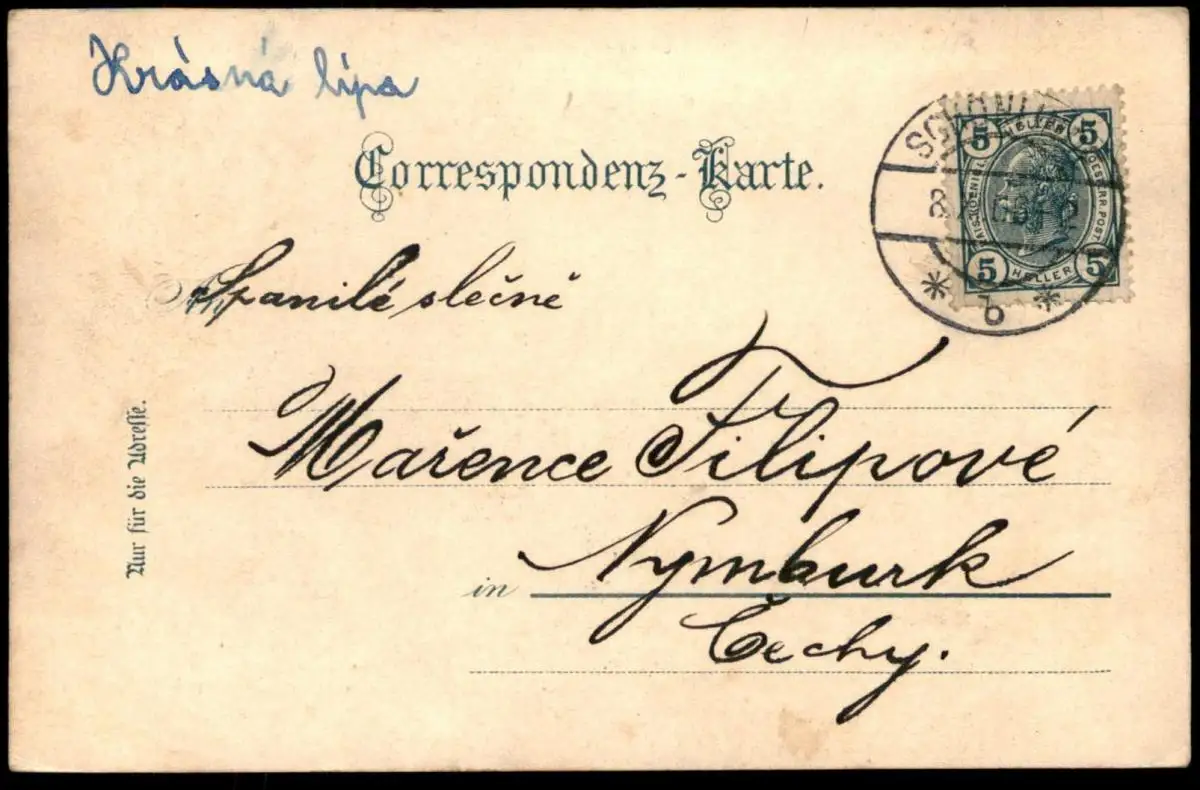 Krásná lípa
Correspondenz-Karte.
5 HELLER 5
KAIS. KOENIGL. OESTERR. POST
5 HELLER 5
8
* b *
Spanilé slečně
Mařence Filipové
in Nymburk
Čechy.
Nur für die Adresse.